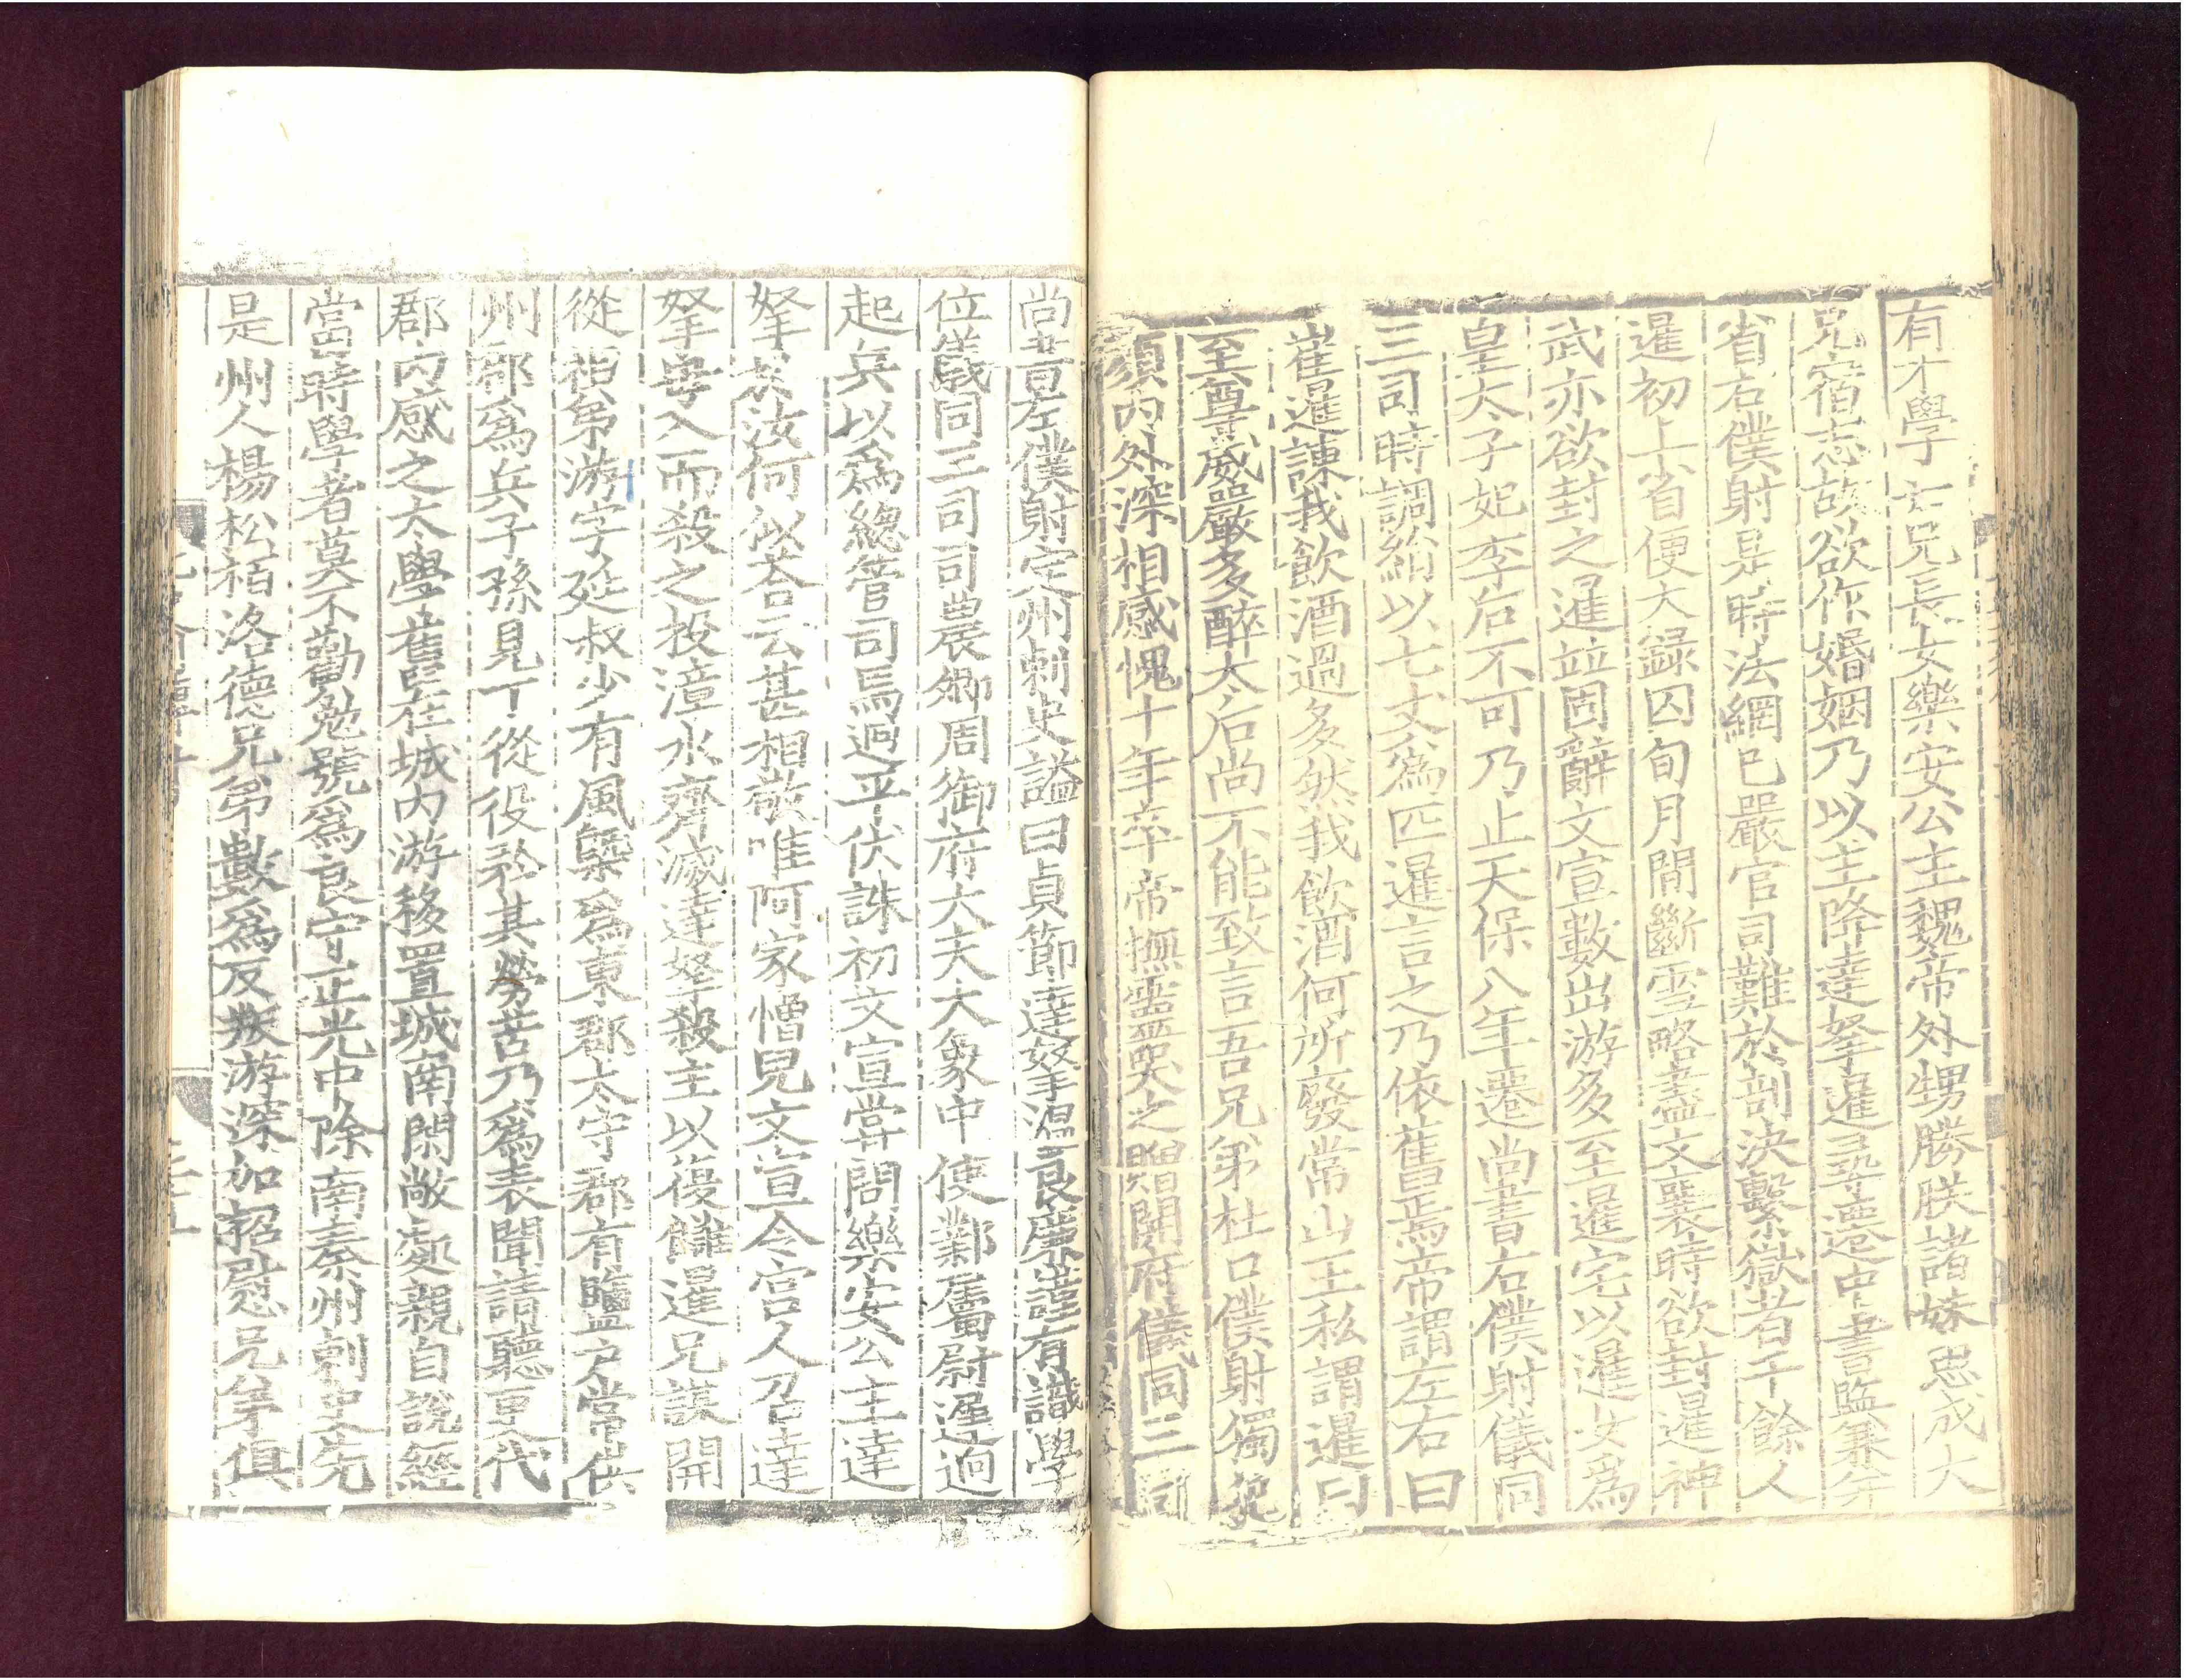 有才學亡兄長女樂安公主魏帝外甥勝朕諸妹思成大
兄宿志故欲作婚姻乃以主降達拏暹尋遷中書監兼并
省右僕射是時法網已嚴官司難於剖決繫獄者千餘人
暹初上省便大録囚旬月間斷雪略盡文襄時欲封暹神
武亦欲封之暹並固辭文宣數出游多至暹宅以暹女爲
皇太子妃李后不可乃止天保八年遷尚書右僕射儀同
三司時調絹以七丈爲匹暹言之乃依舊焉帝謂左右曰
崔暹諫我飲酒過多然我飲酒何所廢常山王私謂暹曰
至尊威嚴多醉太后尚不能致言吾兄弟杜口僕射獨能犯
顔內外深相感愧十年卒帝撫靈哭之贈開府儀同三司
尚書左僕射定州刺史謚曰貞節達拏温良廉謹有識學
位儀同三司司農卿周御府大夫大象中使鄴屬尉遲迥
起兵以爲總管司馬迥平伏誅初文宣嘗問樂安公主達
拏於汝何似荅云甚相敬唯阿家憎兒文宣令宮人召達
拏母入而殺之投漳水齊滅達拏殺主以復讎暹兄謨開
從祖弟游字延叔少有風槩爲東郡太守郡有鹽戶常供
州郡爲兵子孫見丁從役矜其勞苦乃爲表聞請聽更代
郡內感之太學舊在城內游移置城南閑敞處親自說經
當時學者莫不勸勉號爲良守正光中除南秦州刺史先
是州人楊松柏洛德兄弟數爲反叛游深加招慰兄弟俱